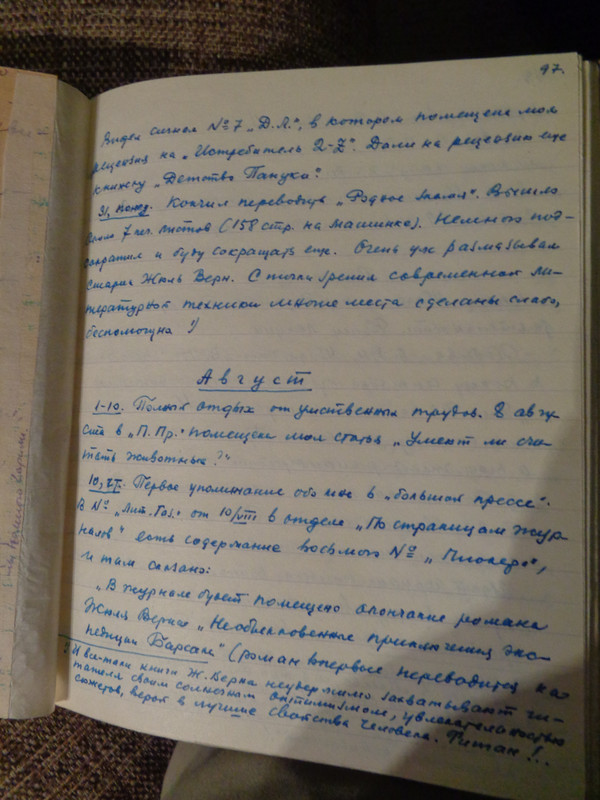 97.
Видел сигнал № 7 „Д.Л.“, в котором помещена моя
рецензия на „Истребитель 2-Z“. Дали на рецензию еще
книжку „Детство Пануки“.
31, понед. Кончил переводить „Родное знамя“. Вышло
около 7 печ. листов (158 стр. на машинке). Немного под-
сократил и буду сокращать еще. Очень уж размазывал
старик Жюль Верн. С точки зрения современной ли-
тературной техники многие места сделаны слабо,
беспомощно 1)
Август
1-10. Полный отдых от умственных трудов. 8 авгу-
ста в „П. Пр.“ помещена моя статья „Умеют ли счи-
тать животные?“
10, Первое упоминание обо мне в „большой прессе“.
В № „Лит. Газ.“ от 10/VIII в отделе „По страницам жур-
налов“ есть содержание восьмого № „Пионера“,
и там сказано:
„В журнале будет помещено окончание романа
Жюля Верна „Необыкновенные приключения экс-
педиции Барсака“ (роман впервые переводится на
1) И все-таки книги Ж. Верна неудержимо захватывают чи-
тателя своим солнечным оптимизмом, увлекательностью
сюжетов, верой в лучшие свойства человека. Титан!..